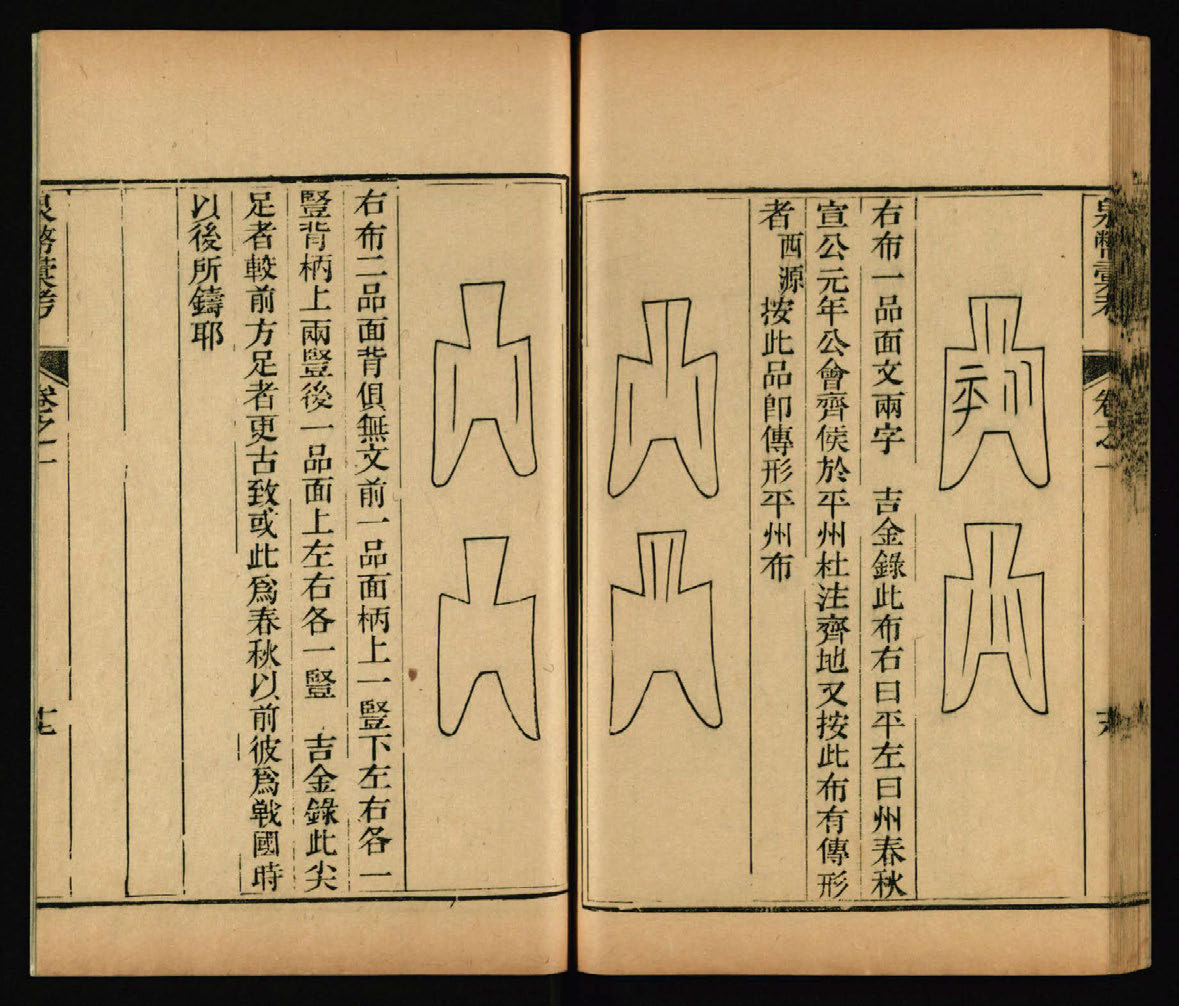 右布一品面文兩字　吉金錄此布右曰平左曰州春秋
宣公元年公會齊侯於平州杜注齊地又按此布有傳形
者　西源按此品卽傳形平州布
右布二品面背俱無文前一品面柄上一豎下左右各一
豎背柄上兩豎後一品面上左右各一豎　吉金錄此尖
足者較前方足者更古致或此爲春秋以前彼爲戰國時
以後所鑄耶
泉幣彙考　卷之一　十七